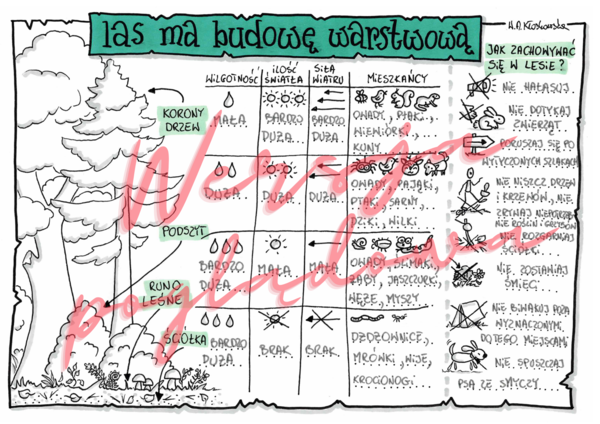 las ma budowę warstwową
H.A. Kłoskowska
WILGOTNOŚĆ
ILOŚĆ
ŚWIATŁA
SIŁA
WIATRU
MIESZKAŃCY
KORONY
DRZEW
MAŁA..
BARDZO
DUŻA...
BARDZO
DUŻA..
OWADY, PTAKI,
WIEWIÓRKI,...
KUNY...
PODSZYT
DUŻA...
DUŻA..
DUŻA..
OWADY, PAJĄKI,
PTAKI, SARNY..
DZIKI, WILKI...
RUNO
LEŚNE
BARDZO
DUŻA...
MAŁA..
MAŁA..
OWADY, ŚLIMAKI,
ŻABY, JASZCZURKI,
WĘŻE, MYSZY...
ŚCIÓŁKA
BARDZO
DUŻA..
BRAK..
BRAK..
DŻDŻOWNICE,.
MRÓWKI, WIJE,
KROCIONOGI...
JAK ZACHOWYWAĆ
SIĘ W LESIE?
NIE HAŁASUJ..
NIE DOTYKAJ
ZWIERZĄT..
PORUSZAJ SIĘ PO
WYTYCZONYCH SZLAKACH
NIE NISZCZ DRZEW
I KRZEWÓW, NIE
ZRYWAJ NIEPOTRZEBNIE
ROŚLIN I GRZYBÓW
NIE ROZGARNIAJ
ŚCIÓŁKI..
NIE ZOSTAWIAJ
ŚMIECI...
NIE BIWAKUJ POZA
WYZNACZONYMI
DO TEGO MIEJSCAMI
NIE SPUSZCZAJ
PSA ZE SMYCZY...
Wersja
poglądowa